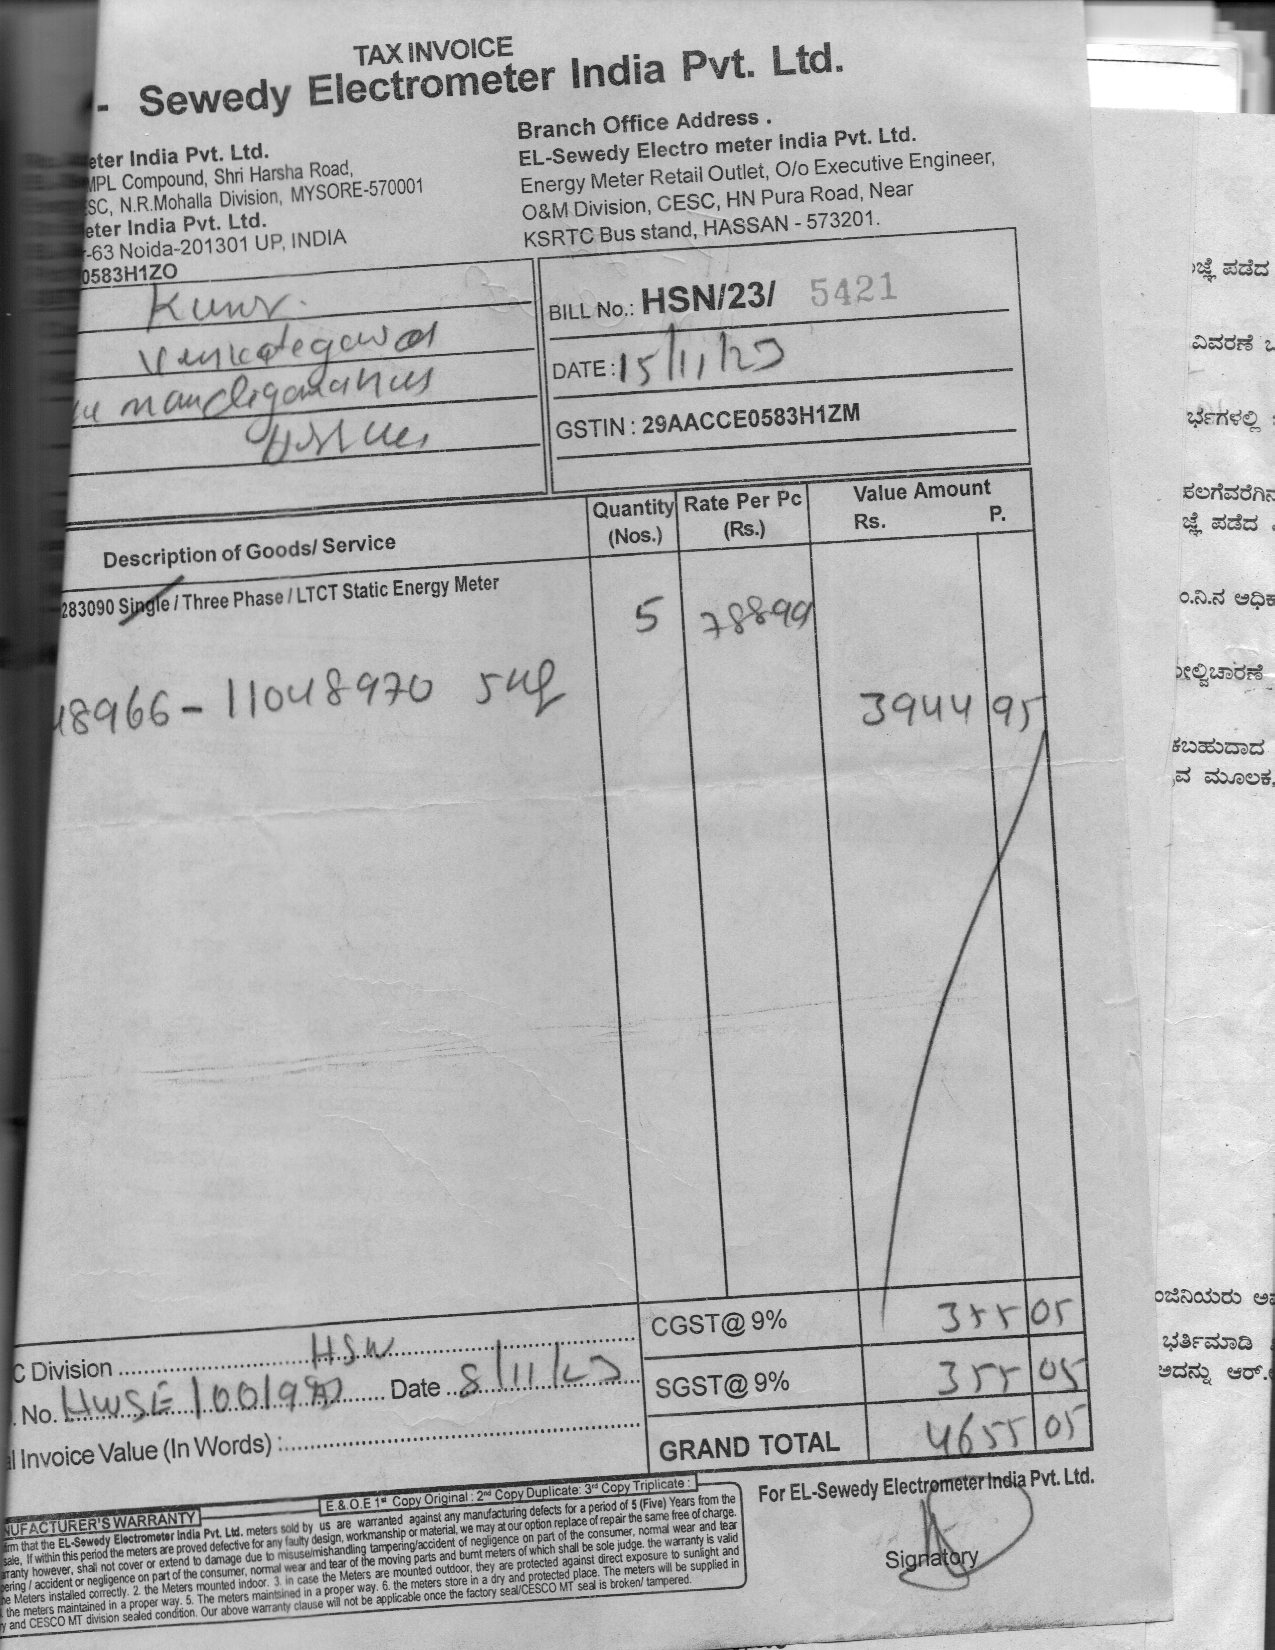 TAX INVOICE
- Sewedy Electrometer India Pvt. Ltd.
eter India Pvt. Ltd.
MPL Compound, Shri Harsha Road,
SC, N.R.Mohalla Division, MYSORE-570001
eter India Pvt. Ltd.
-63 Noida-201301 UP, INDIA
0583H1ZO
Branch Office Address .
EL-Sewedy Electro meter India Pvt. Ltd.
Energy Meter Retail Outlet, O/o Executive Engineer,
O&M Division, CESC, HN Pura Road, Near
KSRTC Bus stand, HASSAN - 573201.
BILL No.: HSN/23/ 5421
DATE : 15/11/23
GSTIN : 29AACCE0583H1ZM
Description of Goods/ Service
Quantity (Nos.)
Rate Per Pc (Rs.)
Value Amount
Rs. P.
283090 Single / Three Phase / LTCT Static Energy Meter
5 78899
48966 - 11048970
3944 95
CGST@ 9% 355 05
SGST@ 9% 355 05
GRAND TOTAL 4655 05
C Division HSN
. No. Date 8/11/23
l Invoice Value (In Words) :
For EL-Sewedy Electrometer India Pvt. Ltd.
Signatory
E.&.O.E 1st Copy Original : 2nd Copy Duplicate: 3rd Copy Triplicate :
NUFACTURER'S WARRANTY
irm that the EL-Sewedy Electrometer India Pvt. Ltd. meters sold by us are warranted against any manufacturing defects for a period of 5 (Five) Years from the
sale, If within this period the meters are proved defective for any faulty design, workmanship or material, we may at our option replace of repair the same free of charge.
rranty however, shall not cover or extend to damage due to misuse/mishandling tampering/accident of negligence on part of the consumer, normal wear and tear
pering / accident or negligence on part of the consumer, normal wear and tear of the moving parts and burnt meters of which shall be sole judge. the warranty is valid
he Meters installed correctly. 2. the Meters mounted indoor. 3. in case the Meters are mounted outdoor, they are protected against direct exposure to sunlight and
the meters maintained in a proper way. 5. The meters maintsined in a proper way. 6. the meters store in a dry and protected place. The meters will be supplied in
y and CESCO MT division sealed condition. Our above warranty clause will not be applicable once the factory seal/CESCO MT seal is broken/ tampered.
ಜ್ಞೆ ಪಡೆದ
ವಿವರಣೆ
ರ್ಭಗಳಲ್ಲಿ
ಜ್ಞೆ ಪಡೆದ
ಂ.ನಿ.ನ ಅಧಿಕ
ಕಬಹುದಾದ
ವ ಮೂಲಕ,
ಂಜಿನಿಯರು
ಭರ್ತಿಮಾಡಿ
ಅದನ್ನು ಆರ್.